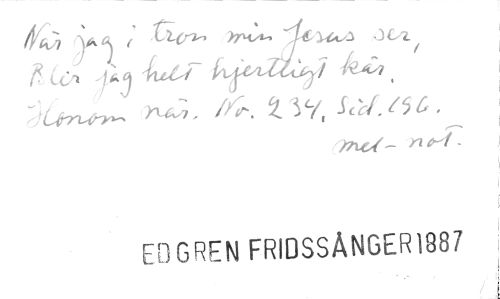 När jag i tron min Jesus ser,
Blir jag helt hjertligt kär.
Honom när. No. 234, Sid. 196.
mel-not.
EDGREN FRIDSSÅNGER 1887